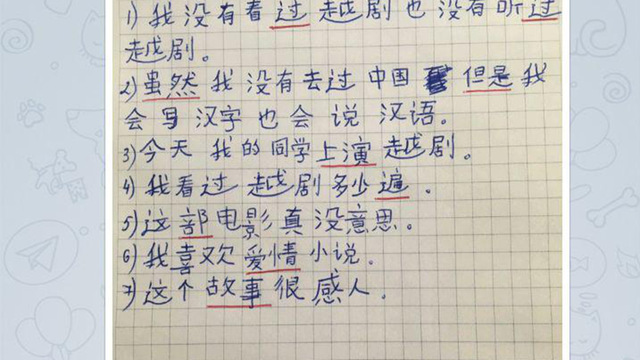 1) 我没有看过越剧也没有听过
越剧。
2) 虽然我没有去过中国但是我
会写汉字也会说汉语。
3) 今天我的同学上演越剧。
4) 我看过越剧多少遍.
5) 这部电影真没意思。
6) 我喜欢爱情小说.
7) 这个故事很感人.